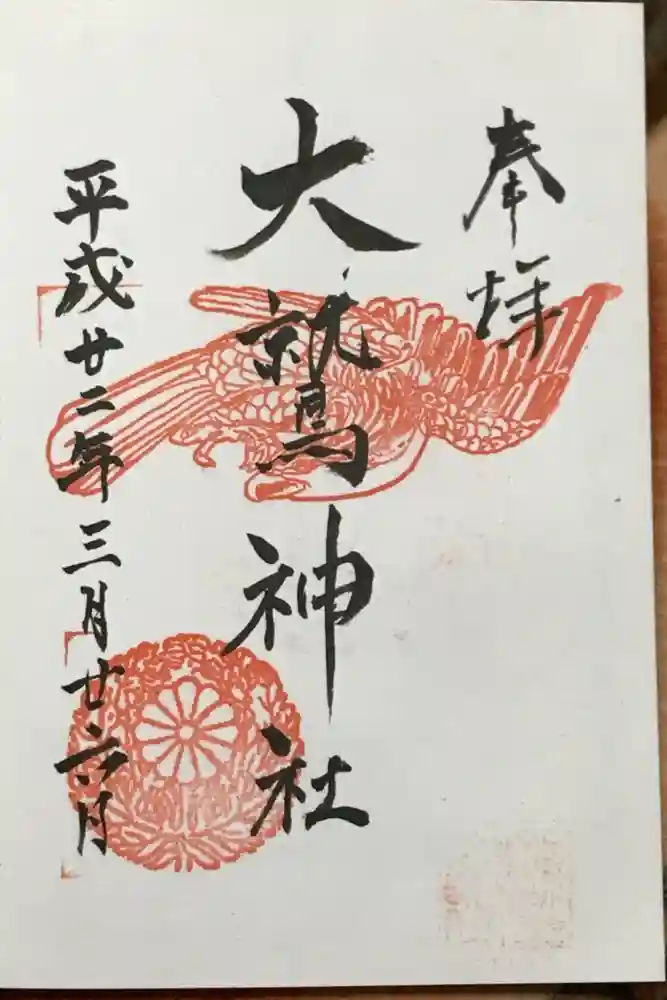 奉拝
大鷲神社
平成廿二年三月廿六月